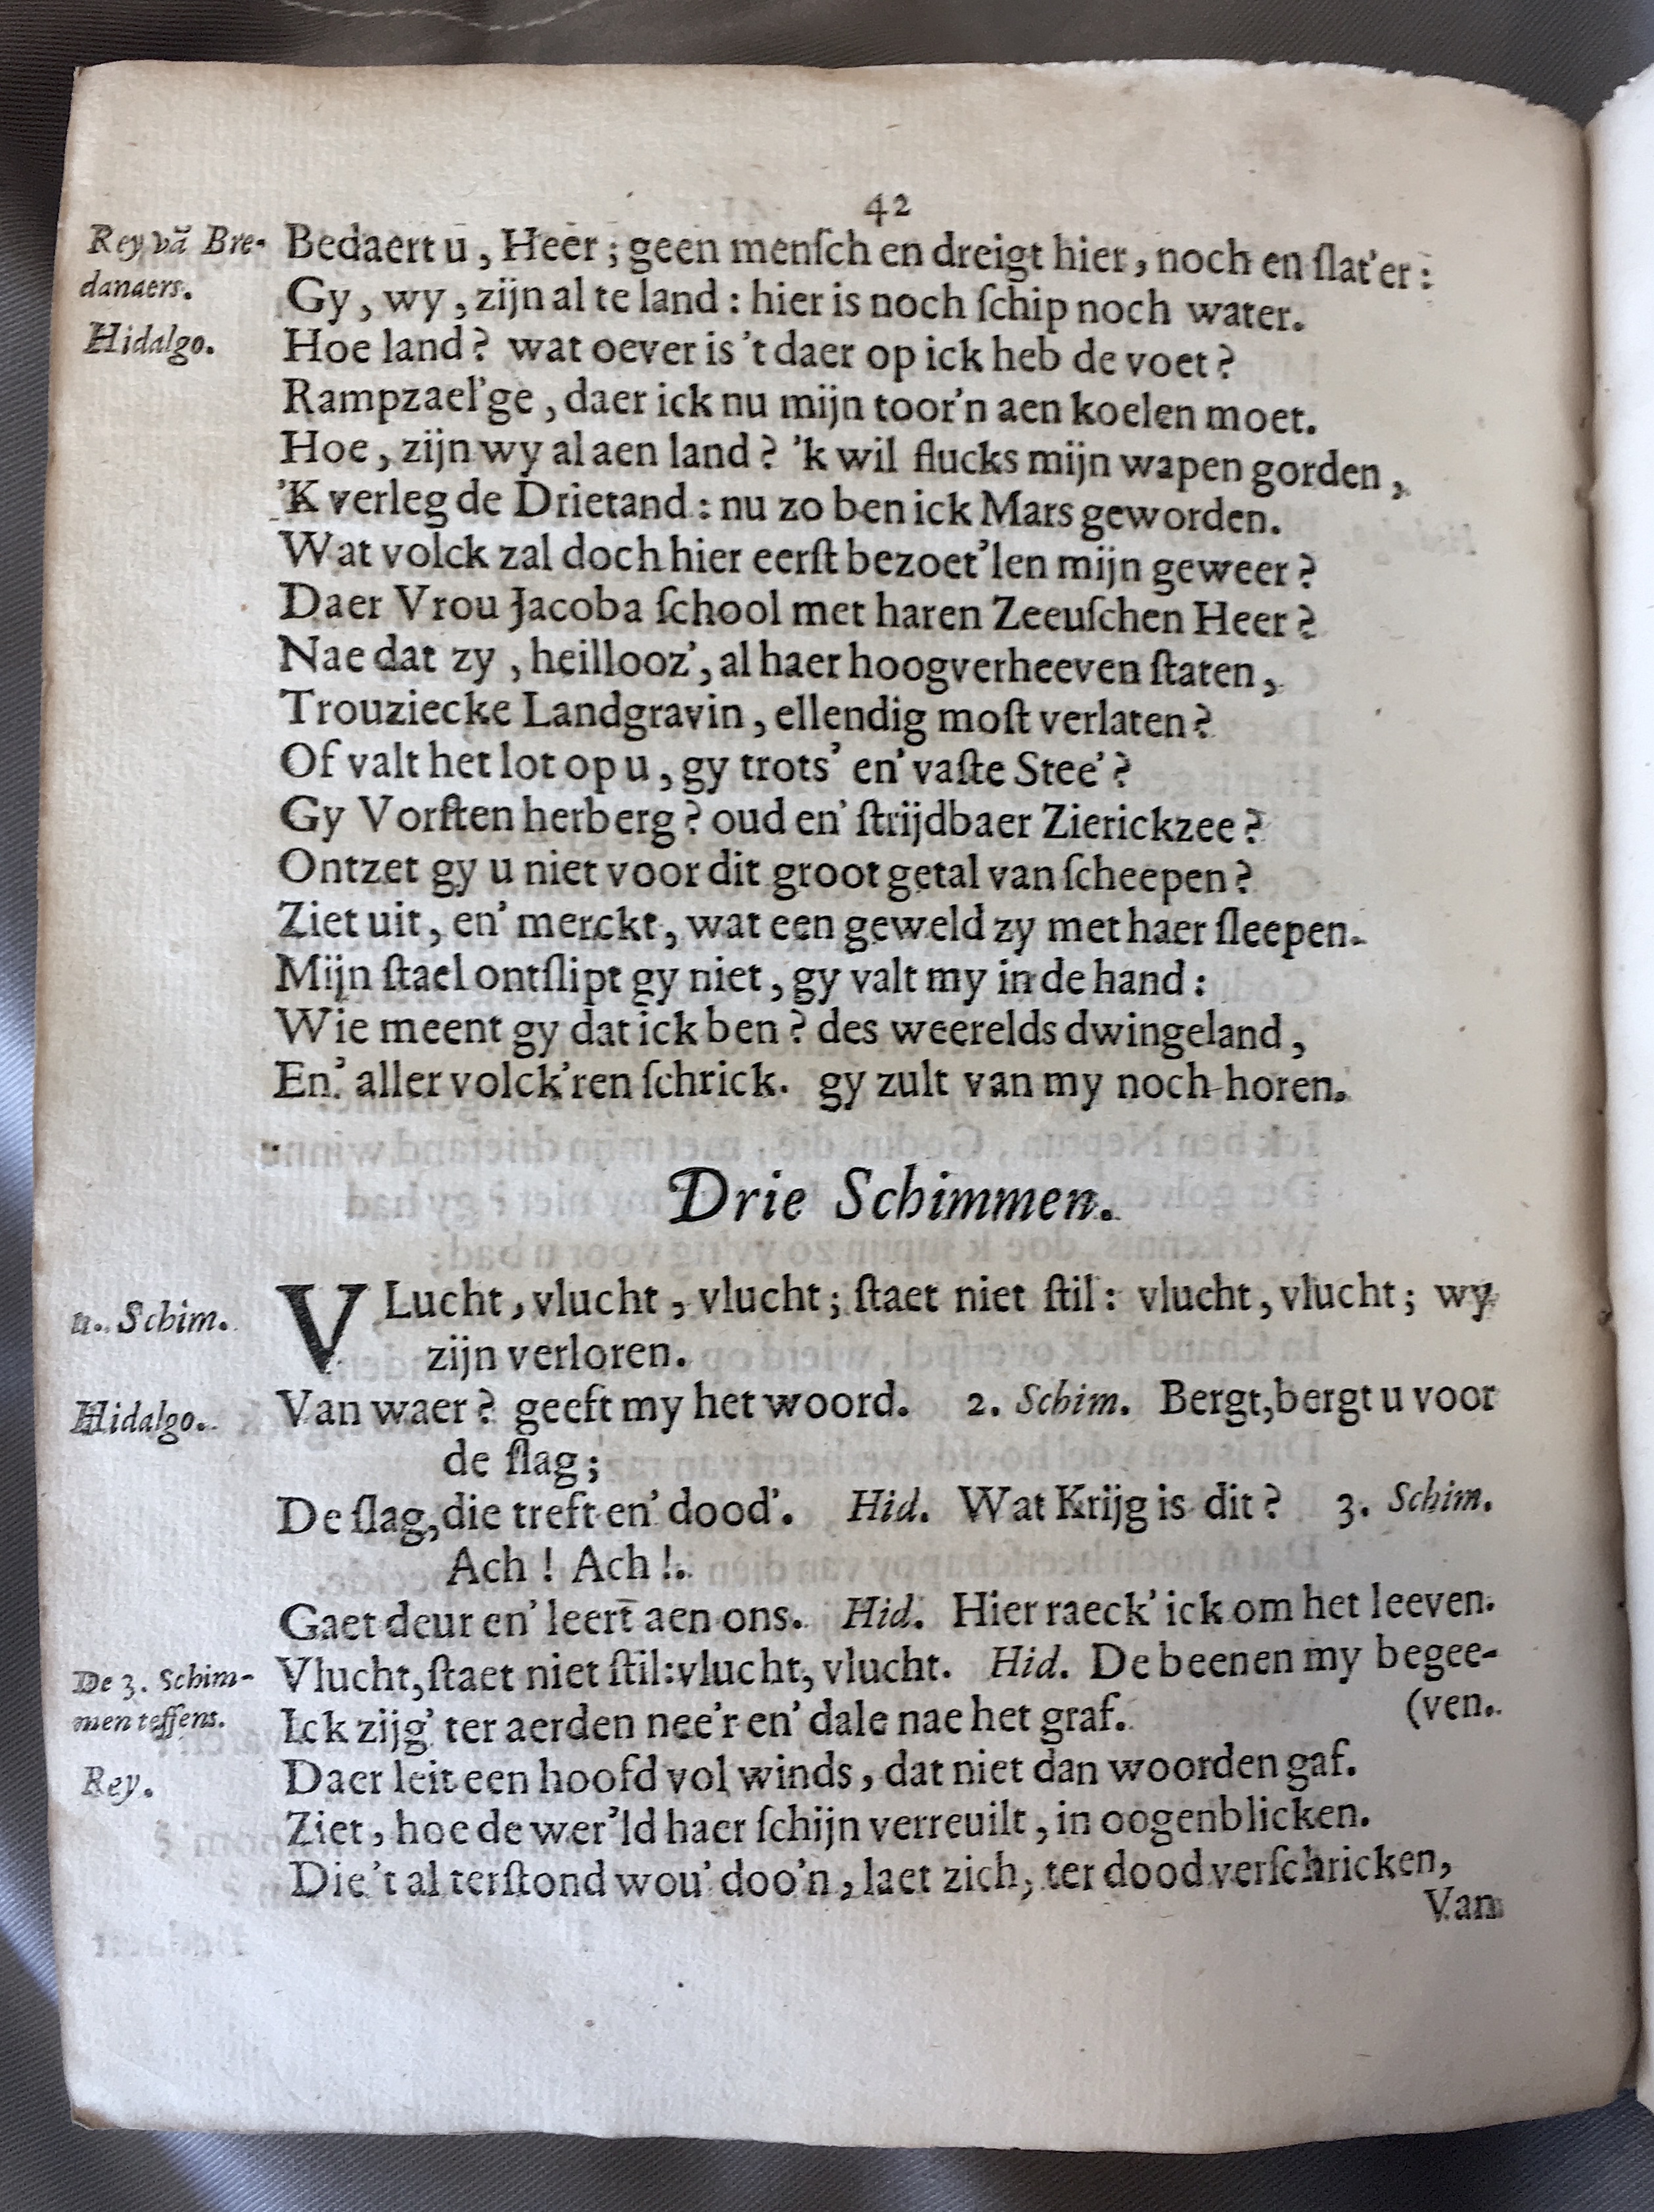 42
Rey vā Bre- Bedaert u, Heer; geen menſch en dreigt hier, noch en ſlat'er:
danaers. Gy, wy, zijn al te land: hier is noch ſchip noch water.
Hidalgo. Hoe land? wat oever is 't daer op ick heb de voet?
Rampzael'ge, daer ick nu mijn toor'n aen koelen moet.
Hoe, zijn wy al aen land? 'k wil flucks mijn wapen gorden,
'K verleg de Drietand: nu zo ben ick Mars geworden.
Wat volck zal doch hier eerſt bezoet'len mijn geweer?
Daer Vrou Jacoba ſchool met haren Zeeuſchen Heer?
Nae dat zy, heillooz', al haer hoogverheeven ſtaten,
Trouziecke Landgravin, ellendig moſt verlaten?
Of valt het lot op u, gy trots' en' vaſte Stee'?
Gy Vorſten herberg? oud en' ſtrijdbaer Zierickzee?
Ontzet gy u niet voor dit groot getal van ſcheepen?
Ziet uit, en' merckt, wat een geweld zy met haer ſleepen.
Mijn ſtael ontſlipt gy niet, gy valt my in de hand:
Wie meent gy dat ick ben? des weerelds dwingeland,
En' aller volck'ren ſchrick. gy zult van my noch horen.
Drie Schimmen.
1. Schim. VLucht, vlucht, vlucht; ſtaet niet ſtil: vlucht, vlucht; wy
zijn verloren.
Hidalgo. Van waer? geeft my het woord. 2. Schim. Bergt, bergt u voor
de ſlag;
De ſlag, die treft en' dood'. Hid. Wat Krijg is dit? 3. Schim.
Ach! Ach!
Gaet deur en' leert aen ons. Hid. Hier raeck' ick om het leeven.
De 3. Schim- Vlucht, ſtaet niet ſtil: vlucht, vlucht. Hid. De beenen my begee-
men teffens. Ick zijg' ter aerden nee'r en' dale nae het graf. (ven.
Rey. Daer leit een hoofd vol winds, dat niet dan woorden gaf.
Ziet, hoe de wer'ld haer ſchijn verreuilt, in oogenblicken.
Die 't al terſtond wou' doo'n, laet zich, ter dood verſchricken,
Van